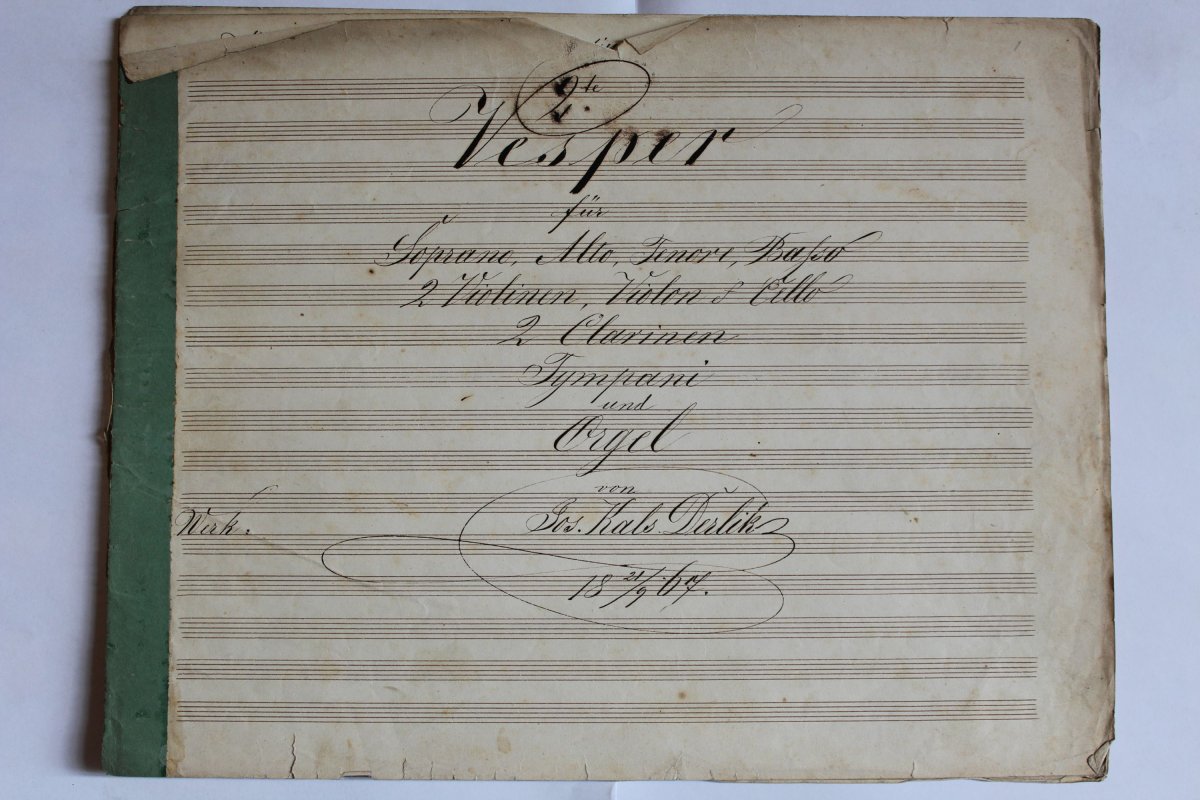 2te
Vesper
für
Soprano, Alto, Tenore, Baßo
2 Violinen, Violon & Cello
2 Clarinen
Tympani
und
Orgel
von
Werk. Jos. Kals Derlik
18 21/9 67.